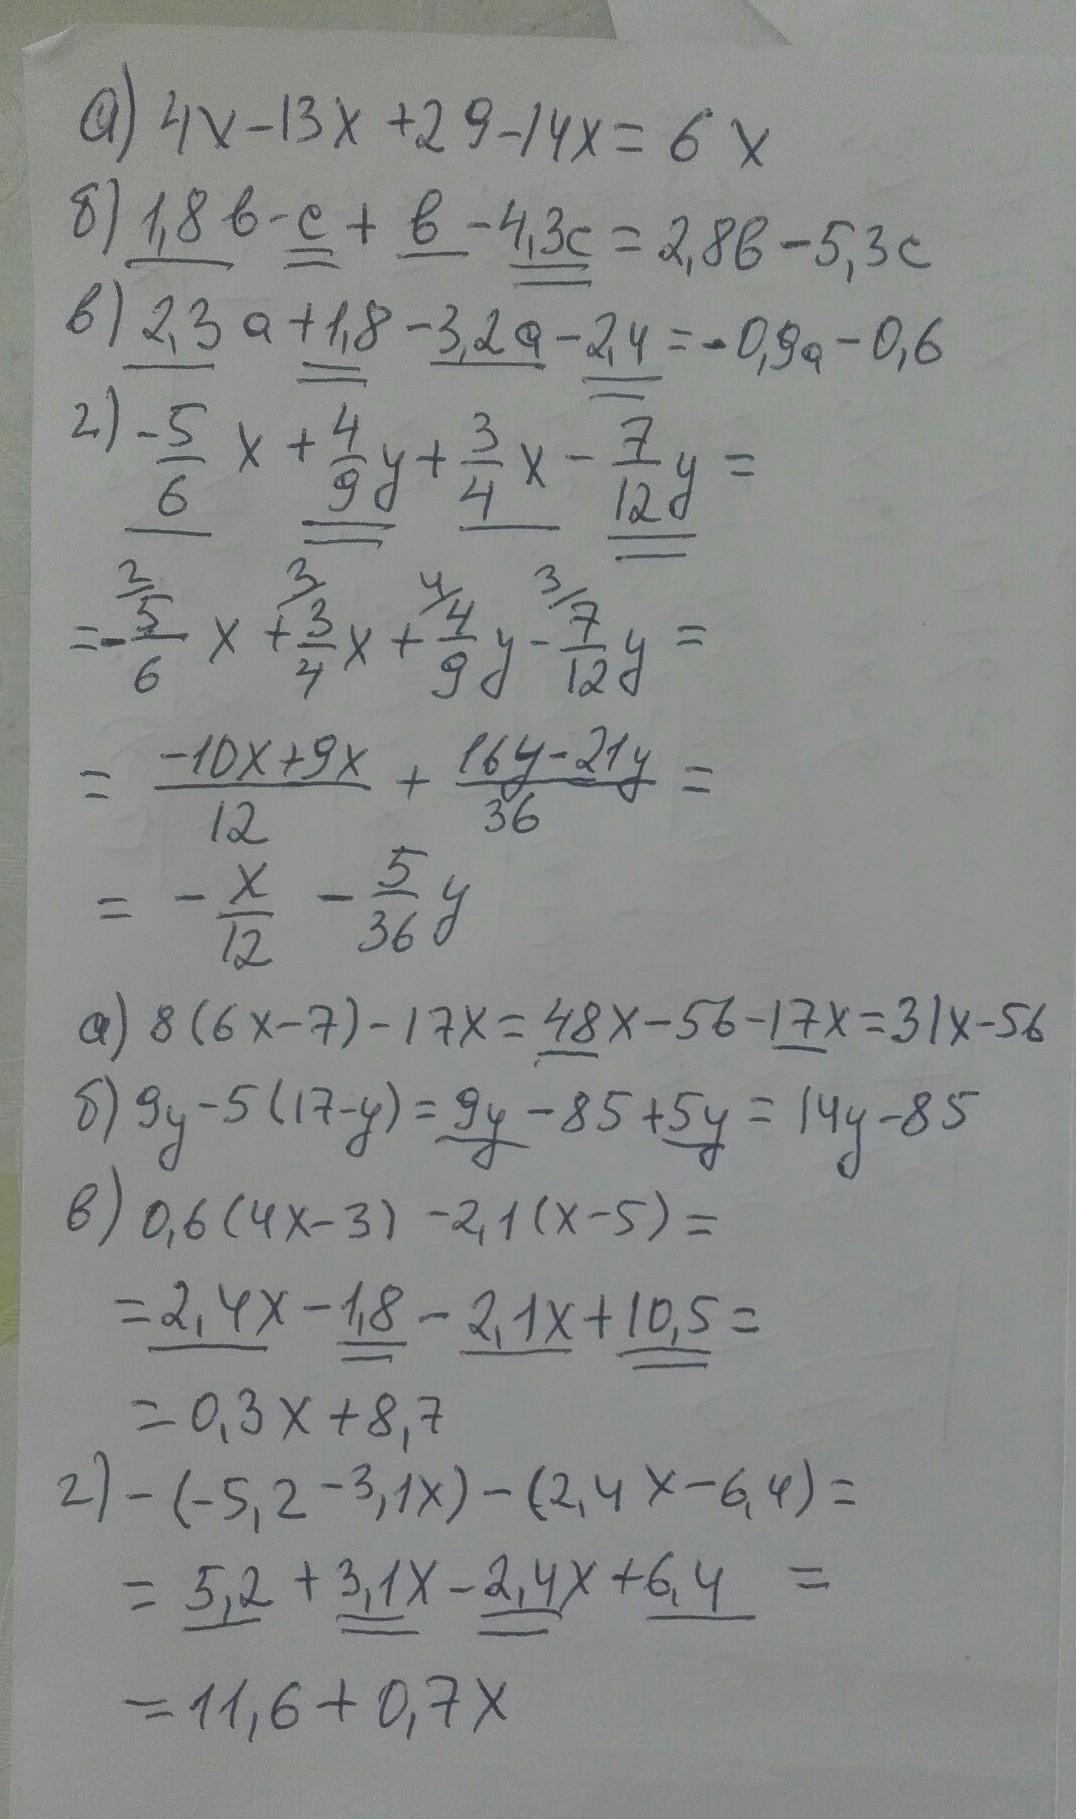 а) 4x-13x+29-14x=6x
б) 1,8в-с+в-4,3с=2,8в-5,3с
в) 2,3a+1,8-3,2a-2,4=-0,9a-0,6
г) -5/6 x + 4/9 y + 3/4 x - 7/12 y =
= - 2/ 5/6 x + 3/ 3/4 x + 4/ 4/9 y - 3/ 7/12 y =
= (-10x+9x)/12 + (16y-21y)/36 =
= - x/12 - 5/36 y
а) 8(6x-7)-17x=48x-56-17x=31x-56
б) 9y-5(17-y)=9y-85+5y=14y-85
в) 0,6(4x-3)-2,1(x-5)=
=2,4x-1,8-2,1x+10,5=
=0,3x+8,7
г) -(-5,2-3,1x)-(2,4x-6,4)=
=5,2+3,1x-2,4x+6,4=
=11,6+0,7x